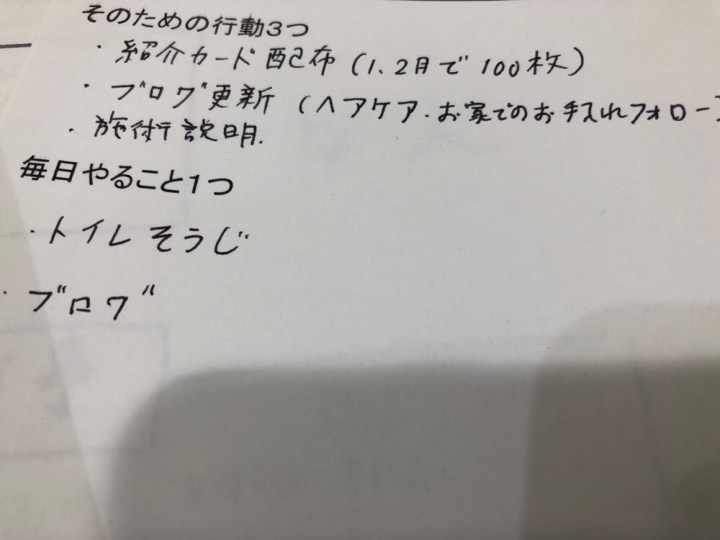 そのための行動3つ
・紹介カード配布(1、2月で100枚)
・ブログ更新(ヘアケア・お家でのお手入れフォロー
・施術説明.
毎日やること1つ
・トイレそうじ
・ブログ